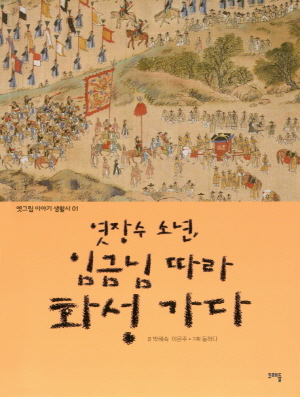 옛그림 이야기 생활사 01
엿장수 소년,
임금님 따라
화성 가다
글 박혜숙